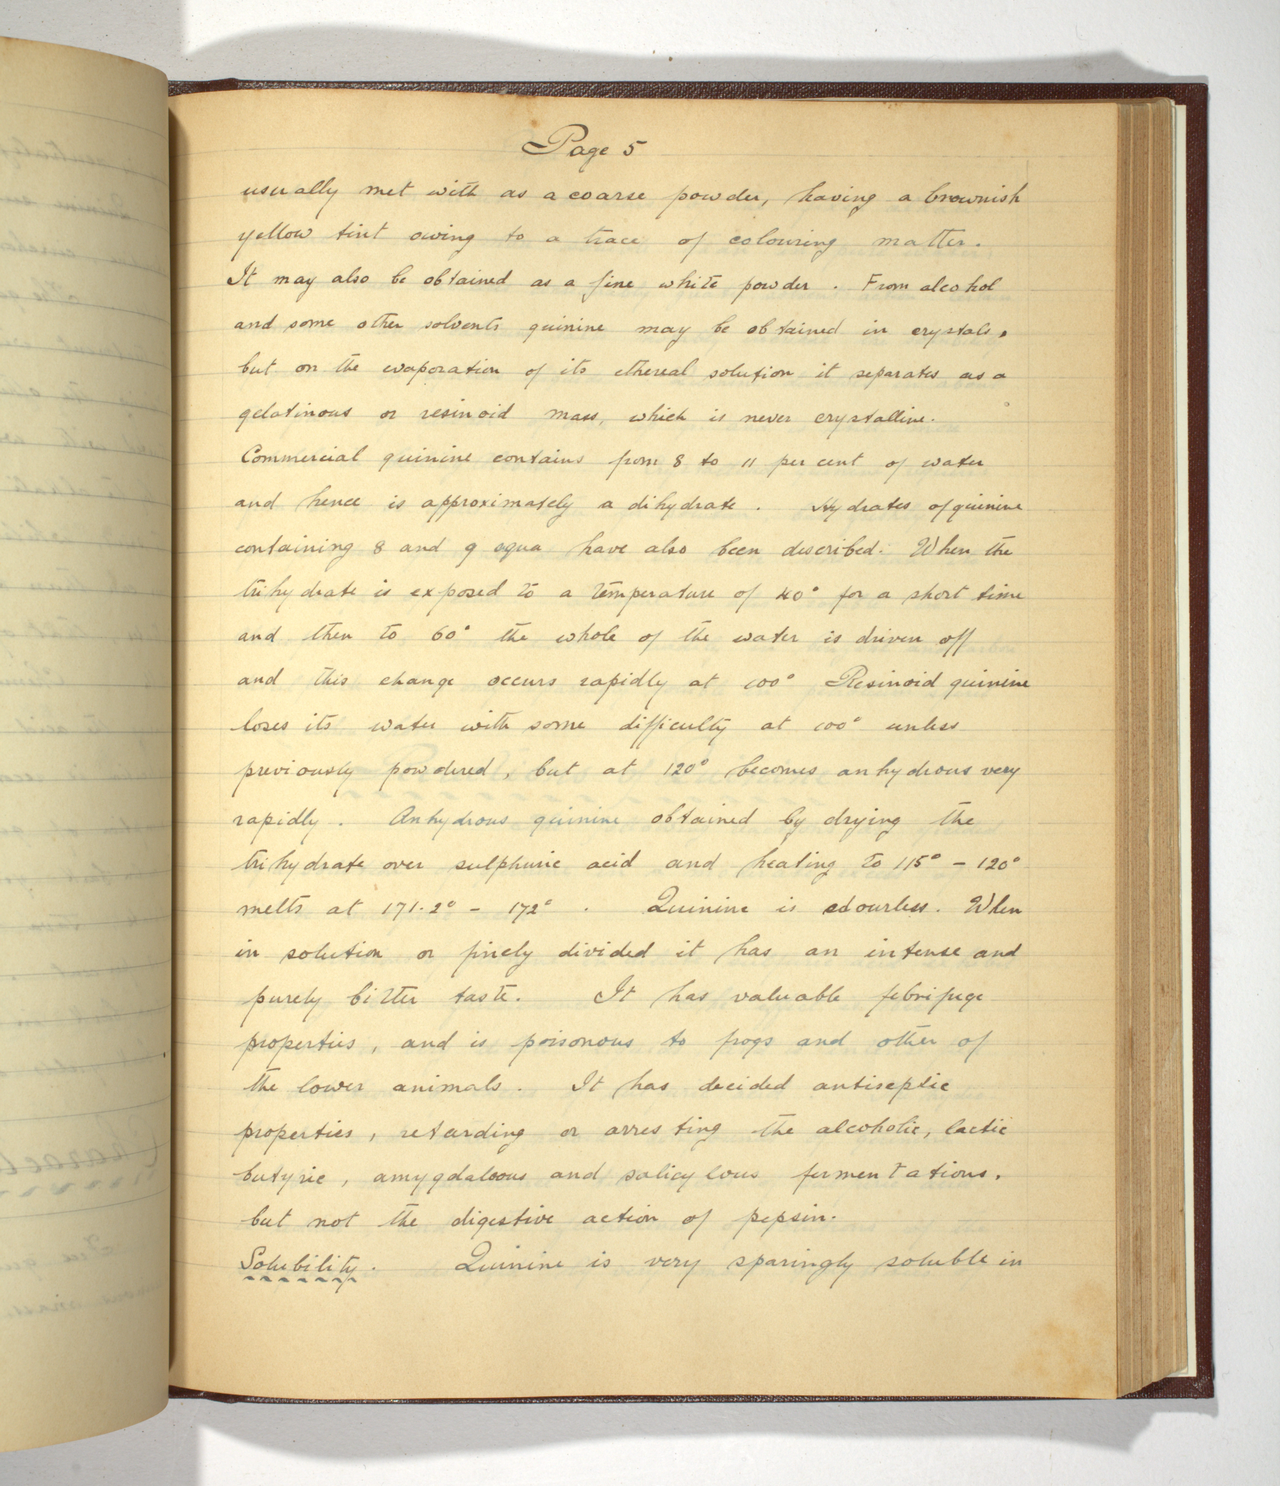 Page 5
usually met with as a coarse powder, having a brownish
yellow tint owing to a trace of colouring matter.
It may also be obtained as a fine white powder. From alcohol
and some other solvents quinine may be obtained in crystals,
but on the evaporation of its ethereal solution it separates as a
gelatinous or resinoid mass, which is never crystalline.
Commercial quinine contains from 8 to 11 per cent of water
and hence is approximately a dihydrate. Hydrates of quinine
containing 8 and 9 aqua have also been described. When the
trihydrate is exposed to a temperature of 40° for a short time
and then to 60° the whole of the water is driven off
and this change occurs rapidly at 100° Resinoid quinine
loses its water with some difficulty at 100° unless
previously powdered, but at 120° becomes anhydrous very
rapidly. Anhydrous quinine obtained by drying the
trihydrate over sulphuric acid and heating to 115° - 120°
melts at 171.2° - 172°. Quinine is odourless. When
in solution or finely divided it has an intense and
purely bitter taste. It has valuable febrifuge
properties, and is poisonous to frogs and other of
the lower animals. It has decided antiseptic
properties, retarding or arresting the alcoholic, lactic
butyric, amygdalous and salicylous fermentations,
but not the digestive action of pepsin.
Solubility. Quinine is very sparingly soluble in